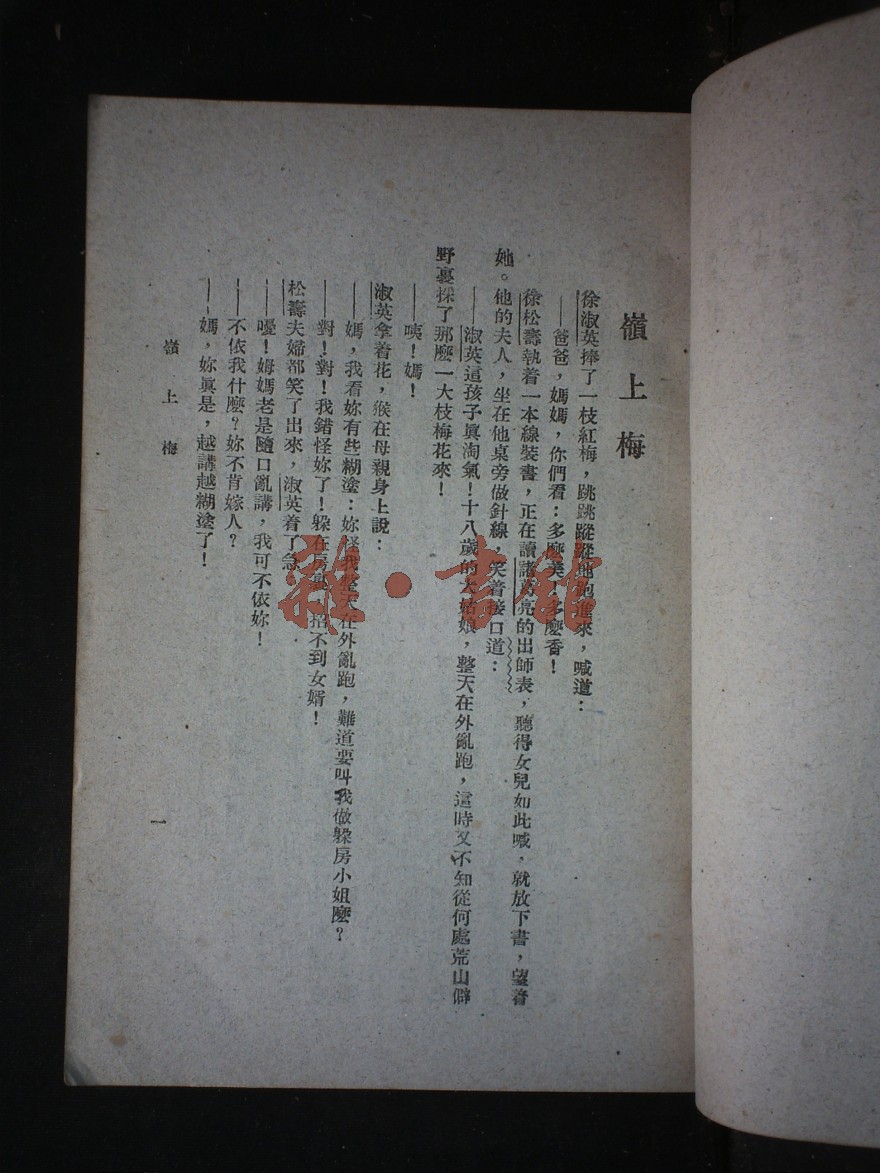 嶺上梅
徐淑英捧了一枝紅梅，跳跳蹤蹤地跑進來，喊道：
——爸爸，媽媽，你們看：多麼美，多麼香！
徐松壽執着一本線裝書，正在讀諸葛亮的出師表，聽得女兒如此喊，就放下書，望着
她。他的夫人，坐在他桌旁做針線，笑着接口道：
——淑英這孩子眞淘氣！十八歲的大姑娘，整天在外亂跑，這時又不知從何處荒山僻
野裏採了那麼一大枝梅花來！
——咦！媽！
淑英拿着花，猴在母親身上說：
——媽，我看妳有些糊塗：妳怪我整天在外亂跑，難道要叫我做躲房小姐麼？
——對！對！我錯怪妳了！躲在房裏，招不到女婿！
松壽夫婦都笑了出來，淑英着了急
——嚘！姆媽老是隨口亂講，我可不依妳！
——不依我什麼？妳不肯嫁人？
——媽，妳眞是，越講越糊塗了！
嶺上梅
一
雜·書館